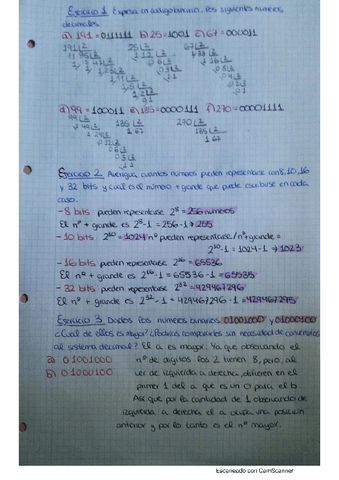 Ejercicio 1. Expresa en código binario, los siguientes números
decimales.
a) 191 = 0111111 b) 25 = 1001 c) 67 = 000011
191 |2 25 |2 67 |2
d) 99 = 100011 e) 135 = 0000111 f) 270 = 00001111
99 |2 135 |2 270 |2
1.67 135 |2
1.67
Ejercicio 2. Averigua, cuantos números pueden representarse con 8, 10, 16
y 32 bits y cuál es el número + grande que puede escribirse en cada
caso.
- 8 bits pueden representarse 2⁸ = 256 números
El nº + grande es 2⁸-1 = 256-1 → 255
- 10 bits: 2¹⁰ = 1024 nº pueden representarse / nº + grande =
2¹⁰-1 = 1024-1 → 1023
- 16 bits pueden representarse 2¹⁶ = 65536
El nº + grande es 2¹⁶-1 = 65536-1 = 65535
- 32 bits pueden representarse 2³² = 429467296
El nº + grande es 2³²-1 = 429467296-1 = 429467295
Ejercicio 3. Dados los números binarios 01001000 y 01000100
¿Cuál de ellos es mayor? ¿Podrías compararlos sin necesidad de convertirlos
al sistema decimal? El a es mayor. Ya que observando el
a) 01001000 nº de dígitos los 2 tienen 8, pero, al
b) 01000100 ver de izquierda a derecha difieren en el
primer 1 del a que es un 0 para el b
Así que por la cantidad de 1 observando de
izquierda a derecha el a ocupa una posición
anterior y por lo tanto es el nº mayor.
Escaneado con CamScanner